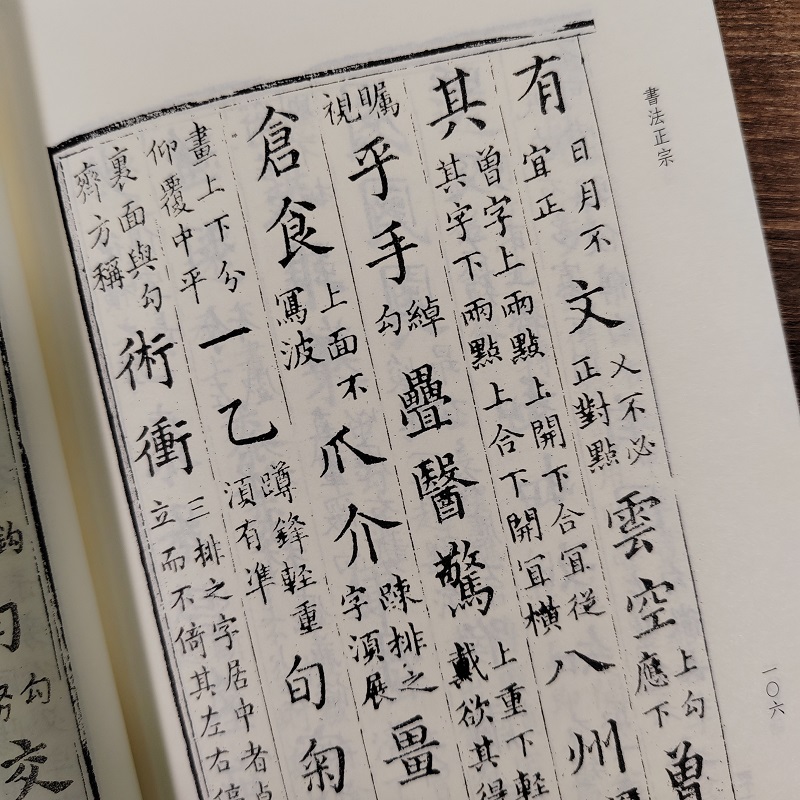 書法正宗
一〇六
有
日月不
宜正
文
乂不必
正對點
雲空
上勾
應下
曾
其
曾字上兩點上開下合宜從
其字下兩點上合下開宜橫
八州
矚
視
乎手
綽
勾
疊醫驚
上重下軽
戴欲其得
倉食
上面不
寫波
爪介
踈排之
字須展
畺
畫上下分
仰覆中平
一乙
蹲鋒軽重
須有准
旬匊
裏面與勾
齊方稱
術衝
三排之字居中者
立而不倚其左右
勾
交